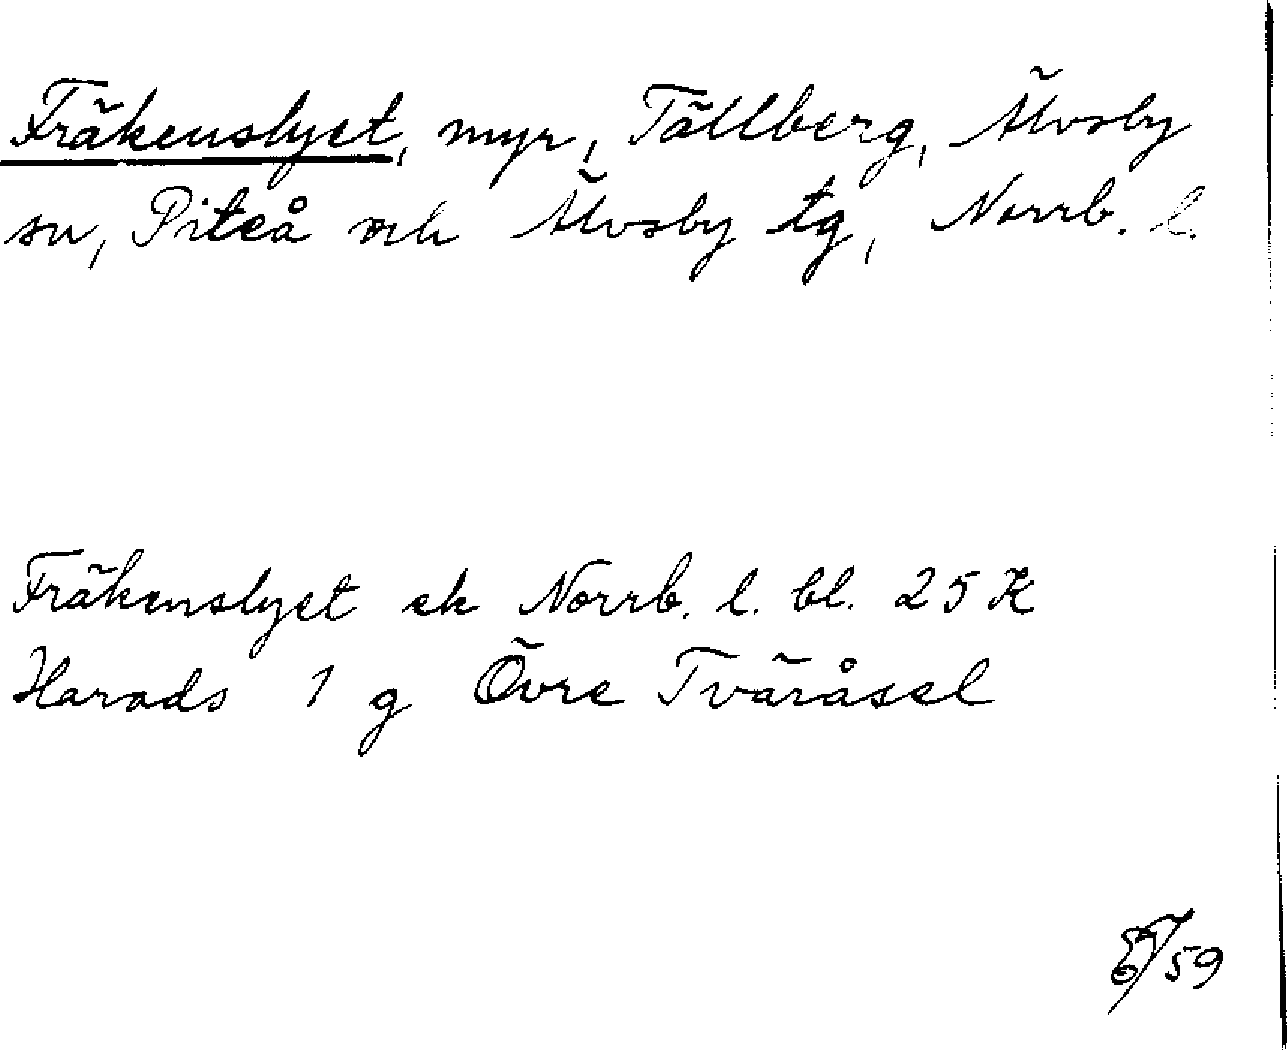 Fräkenslyet, myr, Tällberg, Älvsby
sn, Piteå och Älvsby tg, Norrb. l.
Fräkenslyet ek Norrb. l. bl. 25 K
Harads 1 g Övre Tväråsel
/59